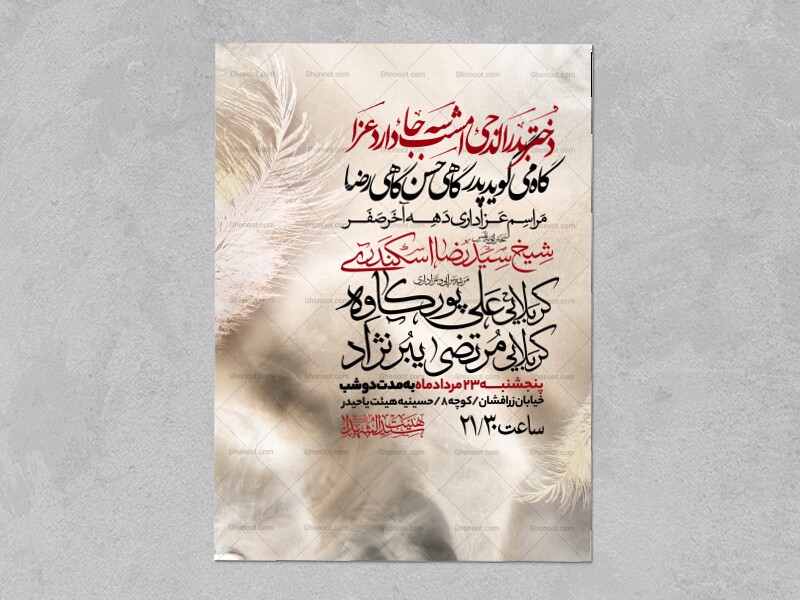 دختر بدرالدجی امشب سه جا دارد عزا
گاه می گوید پدر گاهی حسن گاهی رضا
مراسم عزاداری دهه آخر صفر
سخنرانی نفیس
شیخ سید رضا اسکندری
مرثیه سرایی و عزاداری
کربلایی علی پورکاوه
کربلایی مرتضی یبرنژاد
پنجشنبه ۲۳ مردادماه به مدت دو شب
خیابان زرافشان / کوچه ۸ / حسینیه هیئت یا حیدر
ساعت ۲۱/۳۰
هیئت سیدالشهدا
Ghonoot.com